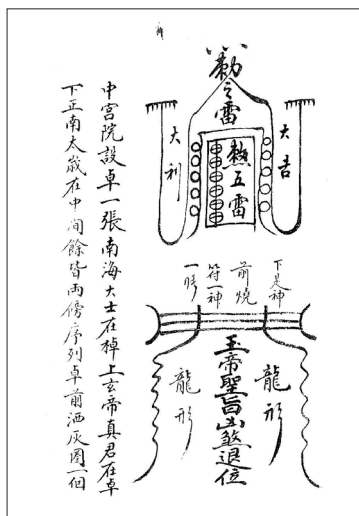 勅令雷
大吉
大利
五雷
下是神
前燒
符一神
玉帝聖旨凶煞退位
龍形
龍形
中宮院設卓一張南海大士在棹上玄帝真君在卓
下正南太歲在中間餘皆兩傍序列卓前洒灰圈一個